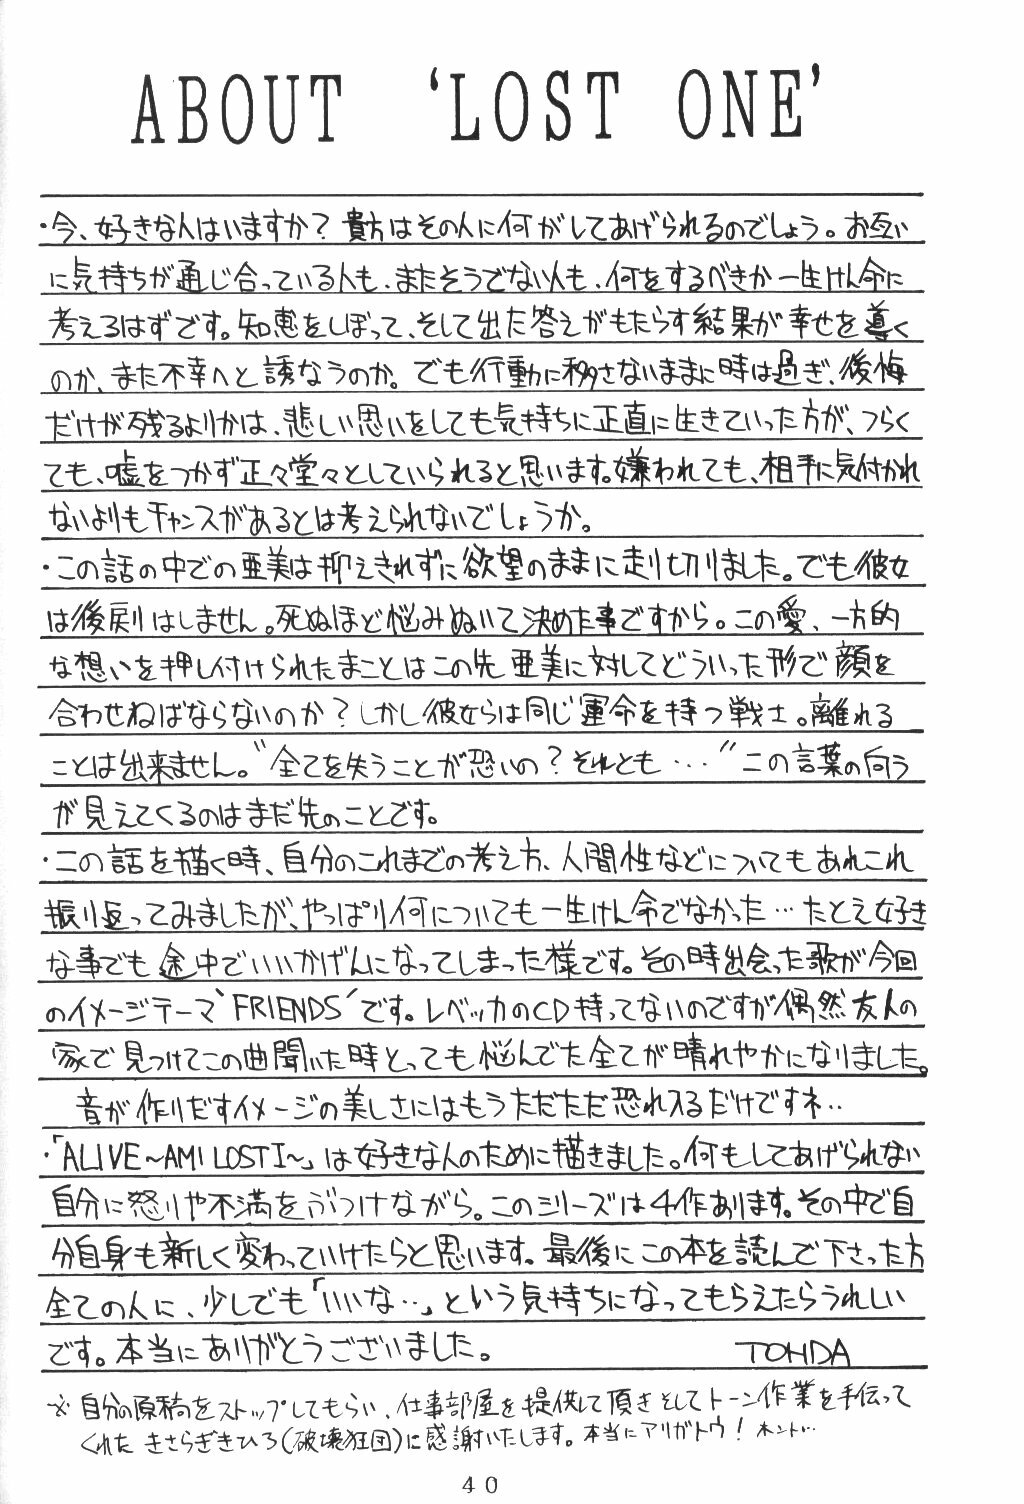 ABOUT 'LOST ONE'
・今、好きな人はいますか？ 貴方はその人に何がしてあげられるのでしょう。お互い
に気持ちが通じ合っている人も、またそうでない人も、何をするべきか一生けん命に
考えるはずです。知恵をしぼって、そして出た答えがもたらす結果が幸せを導く
のか、また不幸へと誘なうのか。でも行動に移さないままに時は過ぎ、後悔
だけが残るよりかは、悲しい思いをしても気持ちに正直に生きていった方が、つらく
ても、嘘をつかず正々堂々としていられると思います。嫌われても、相手に気付かれ
ないよりもチャンスがあるとは考えられないでしょうか。
・この話の中での亜美は抑えきれずに欲望のままに走り切りました。でも彼女
は後戻りはしません。死ぬほど悩みぬいて決めた事ですから。この愛、一方的
な想いを押し付けられたまことはこの先 亜美に対してどういった形で顔を
合わせねばならないのか？しかし彼女らは同じ運命を持つ戦士。離れる
ことは出来ません。“全てを失うことが恐いの？それとも・・・”この言葉の向う
が見えてくるのはまだ先のことです。
・この話を描く時、自分のこれまでの考え方、人間性などについてもあれこれ
振り返ってみましたが、やっぱり何についても一生けん命でなかった…たとえ好き
な事でも途中でいいかげんになってしまった様です。その時出会った歌が今回
のイメージテーマ‘FRIENDS’です。レベッカのCD持ってないのですが偶然友人の
家で見つけてこの曲聞いた時とっても悩んでた全てが晴れやかになりました。
音が作りだすイメージの美しさにはもうただただ恐れ入るだけですネ‥
・「ALIVE～AMI LOST I～」は好きな人のために描きました。何もしてあげられない
自分に怒りや不満をぶつけながら。このシリーズは4作あります。その中で自
分自身も新しく変わっていけたらと思います。最後にこの本を読んで下さった方
全ての人に、少しでも「いいな…」という気持ちになってもらえたらうれしい
です。本当にありがとうございました。 TOHDA
※自分の原稿をストップしてもらい、仕事部屋を提供して頂きそしてトーン作業を手伝って
くれた きさらぎきひろ（破壊狂団）に感謝いたします。本当にアリガトウ！ ホント…
40